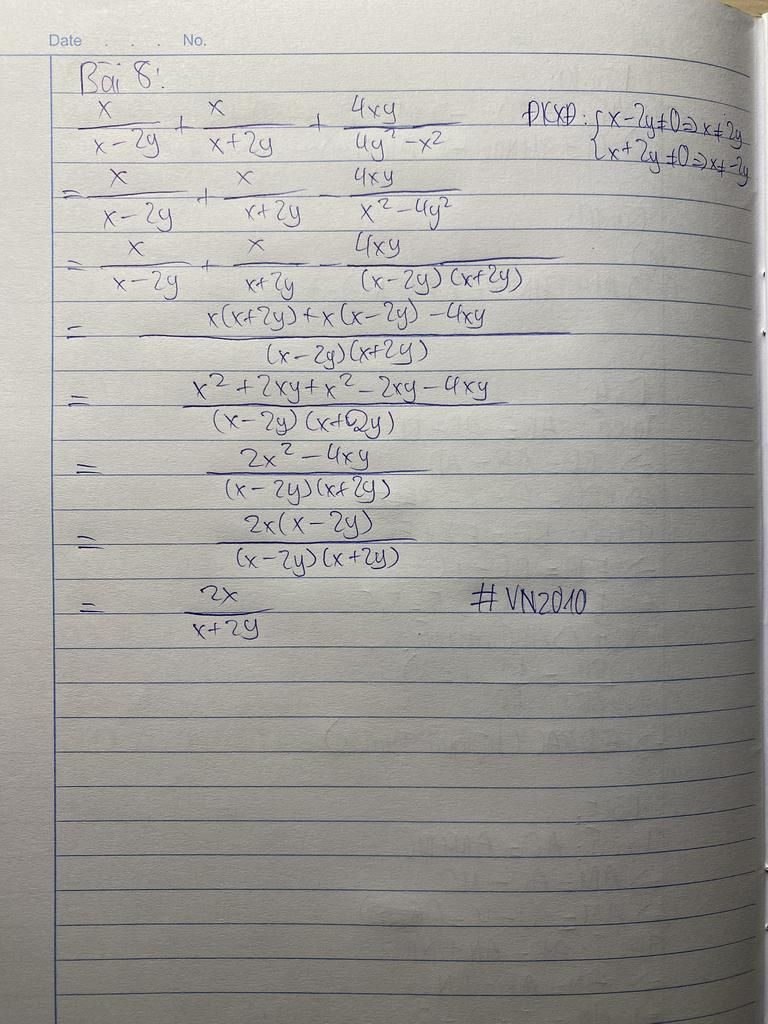 Date . . . No.
Bài 8:
x/(x-2y) + x/(x+2y) + 4xy/(4y²-x²) ĐKXĐ: { x-2y≠0 => x≠2y
{ x+2y≠0 => x≠-2y
= x/(x-2y) + x/(x+2y) - 4xy/(x²-4y²)
= x/(x-2y) + x/(x+2y) - 4xy/((x-2y)(x+2y))
= (x(x+2y)+x(x-2y)-4xy)/((x-2y)(x+2y))
= (x²+2xy+x²-2xy-4xy)/((x-2y)(x+2y))
= (2x²-4xy)/((x-2y)(x+2y))
= 2x(x-2y)/((x-2y)(x+2y))
= 2x/(x+2y) # VN2010